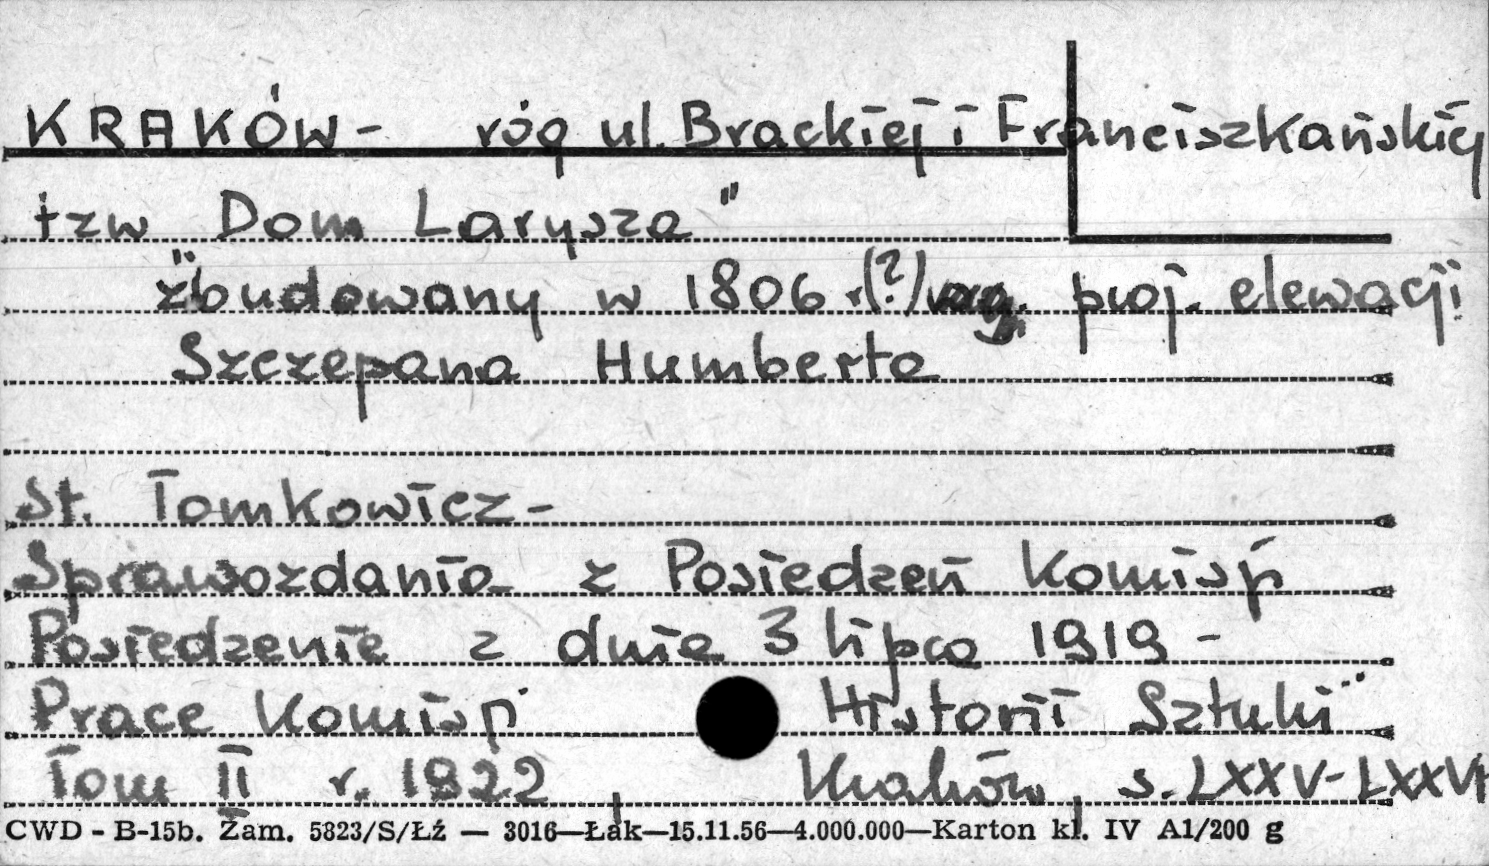 KRAKÓW - róg ul. Brackiej i Franciszkańskiej
tzw "Dom Larysza"
zbudowany w 1806 r (?) wg. proj. elewacji
Szczepana Humberta
St. Tomkowicz -
Sprawozdania z Posiedzeń Komisji
Posiedzenie z dnia 3 lipca 1919 -
Prace Komisji Historii Sztuki"
Tom II r. 1922, Kraków, s. LXXV-LXXVI
CWD - B-15b. Zam. 5823/S/Łź — 3016—Łak—15.11.56—4.000.000—Karton kl. IV A1/200 g